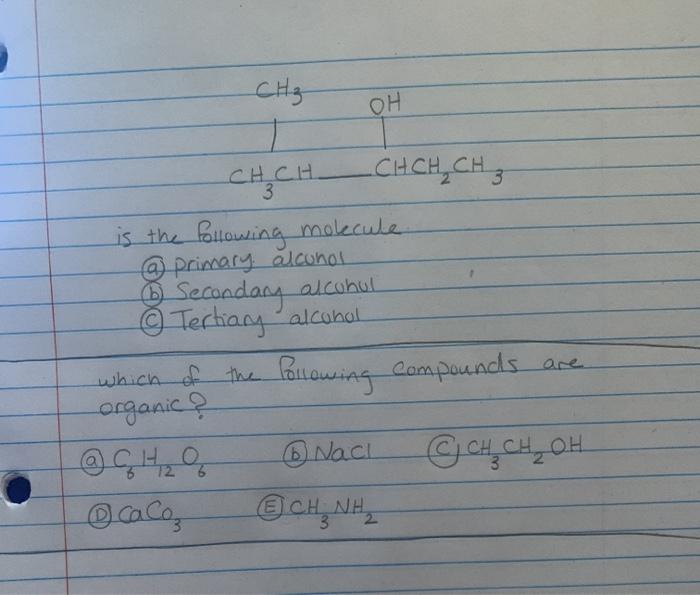 CH₃
OH
CH₃CH — CHCH₂CH₃
is the following molecule
ⓐ primary alcohol
ⓑ Secondary alcohol
ⓒ Tertiary alcohol
which of the following compounds are
organic?
ⓐ C₆H₁₂O₆ ⓑ NaCl Ⓒ CH₃CH₂OH
Ⓓ CaCO₃ Ⓔ CH₃NH₂